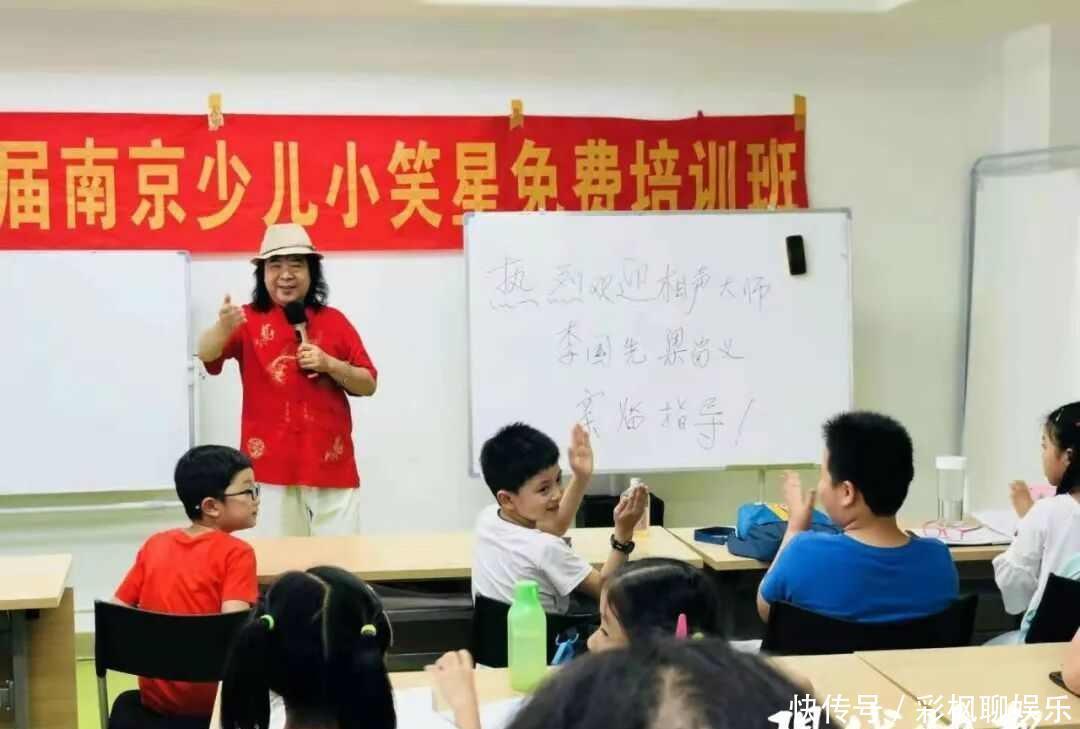 届南京少儿小笑星免费培训班
热烈欢迎相声大师
李国先 梁尚义
莅临指导！
快传号 / 彩枫聊娱乐